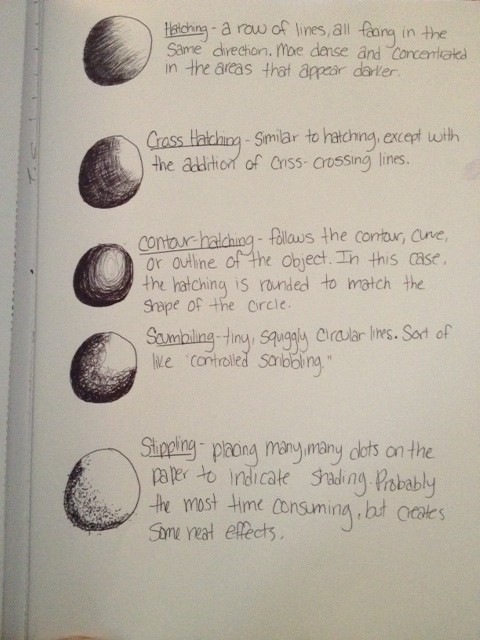 Hatching - a row of lines, all facing in the
same direction. More dense and concentrated
in the areas that appear darker.
Cross Hatching - Similar to hatching, except with
the addition of criss-crossing lines.
contour-hatching - follows the contour, curve,
or outline of the object. In this case,
the hatching is rounded to match the
shape of the circle.
Scumbiling - tiny, squggly circular lines. Sort of
like "controlled scribbling."
Stippling - placing many, many dots on the
paper to indicate shading. Probably
the most time consuming, but creates
some neat effects.